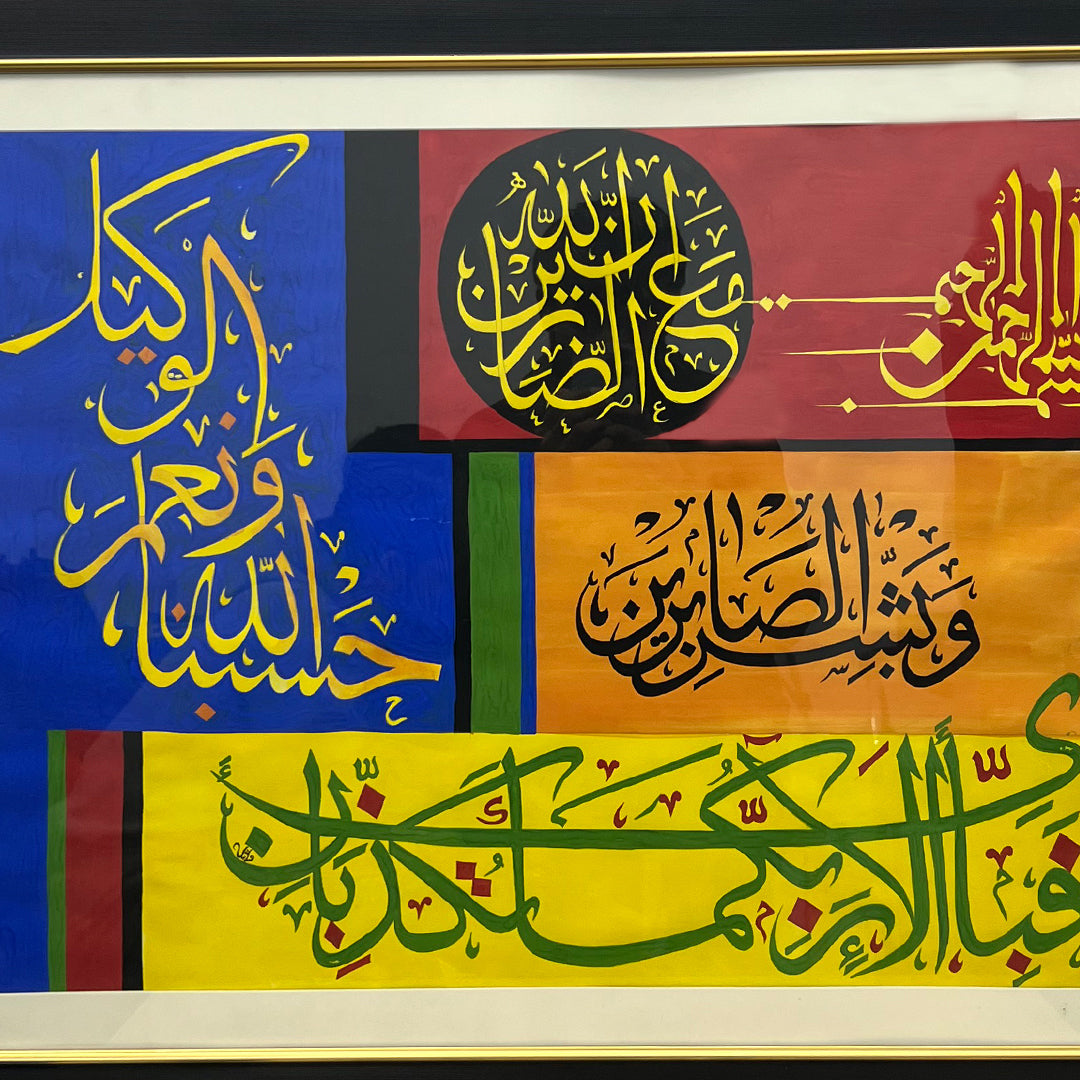 بسم الله الرحمن الرحيم
إِنَّ اللَّهَ مَعَ الصَّابِرِينَ
حَسْبُنَا اللَّهُ وَنِعْمَ الْوَكِيلُ
وَبَشِّرِ الصَّابِرِينَ
فَبِأَيِّ آلَاءِ رَبِّكُمَا تُكَذِّبَانِ